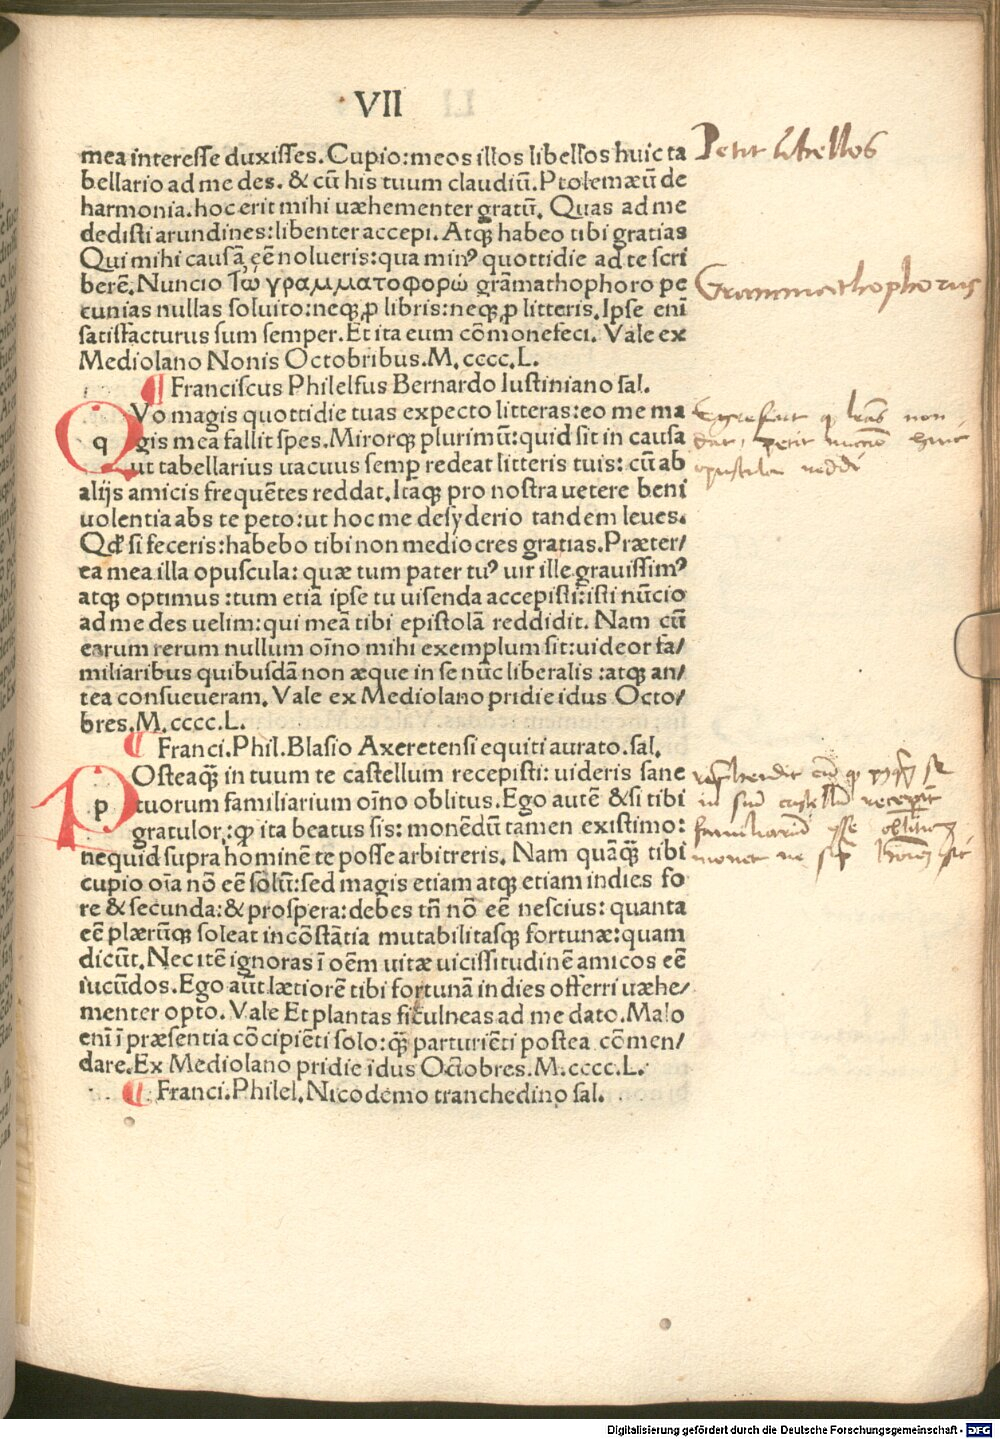 VII
mea interesse duxisses. Cupio: meos illos libellos huic ta
bellario ad me des. & cū his tuum claudiū. Ptolemæū de
harmonia. hoc erit mihi uæhementer gratū. Quas ad me
dedisti arundines: libenter accepi. Atqꝫ habeo tibi gratias
Qui mihi causā eē nolueris: qua minꝰ quottidie ad te scri
berē. Nuncio Τῷ γραμματοφορῷ grāmathophoro pe
cunias nullas soluito: neqꝫ ꝓ libris: neqꝫ ꝓ litteris. Ipse enī
satisfacturus sum semper. Et ita eum cōmonefeci. Vale ex
Mediolano Nonis Octobribus. M. cccc. L.
¶ Franciscus Philelfus Bernardo Iustiniano sal.
QVo magis quottidie tuas expecto litteras: eo me ma
q gis mea fallit spes. Mirorqꝫ plurimū: quid sit in causa
ut tabellarius uacuus semꝑ redeat litteris tuis: cū ab
alijs amicis frequētes reddat. Itaqꝫ pro nostra uetere beni
uolentia abs te peto: ut hoc me desyderio tandem leues.
Qđ si feceris: habebo tibi non mediocres gratias. Præter/
ea mea illa opuscula: quæ tum pater tuꝰ uir ille grauissimꝰ
atqꝫ optimus: tum etiā ipse tu uisenda accepisti: isti nūcio
ad me des uelim: qui meā tibi epistolā reddidit. Nam cū
earum rerum nullum oīno mihi exemplum sit: uideor fa/
miliaribus quibusdā non æque in se nūc liberalis: atqꝫ an/
tea consueueram. Vale ex Mediolano pridie idus Octo/
bres. M. cccc. L.
¶ Franci. Phil. Blasio Axeretensi equiti aurato. sal.
POsteaqꝫ̄ in tuum te castellum recepisti: uideris sane
p tuorum familiarium oīno oblitus. Ego autē & si tibi
gratulor: ꝙ ita beatus sis: monēdū tamen existimo:
nequid supra hominē te posse arbitreris. Nam quāqꝫ̄ tibi
cupio oīa nō eē solū: sed magis etiam atqꝫ etiam indies fo
re & secunda: & prospera: debes tn̄ nō eē nescius: quanta
eē plærūqꝫ soleat incōstātia mutabilitasqꝫ fortunæ: quam
dicūt. Nec itē ignoras ī oēm uitæ uicissitudinē amicos eē
iucūdos. Ego aūt lætiorē tibi fortunā indies offerri uæhe/
menter opto. Vale Et plantas ficulneas ad me dato. Malo
enī ī præsentia cōcipiēti solo: qꝫ̄ parturiēti postea cōmen/
dare. Ex Mediolano pridie idus Octobres. M. cccc. L.
¶ Franci. Philel. Nicodemo tranchedino sal.
Petit libellos
Grammathophorus
non
petit
familiarium esse oblitum
monet ne
Digitalisierung gefördert durch die Deutsche Forschungsgemeinschaft - DFG